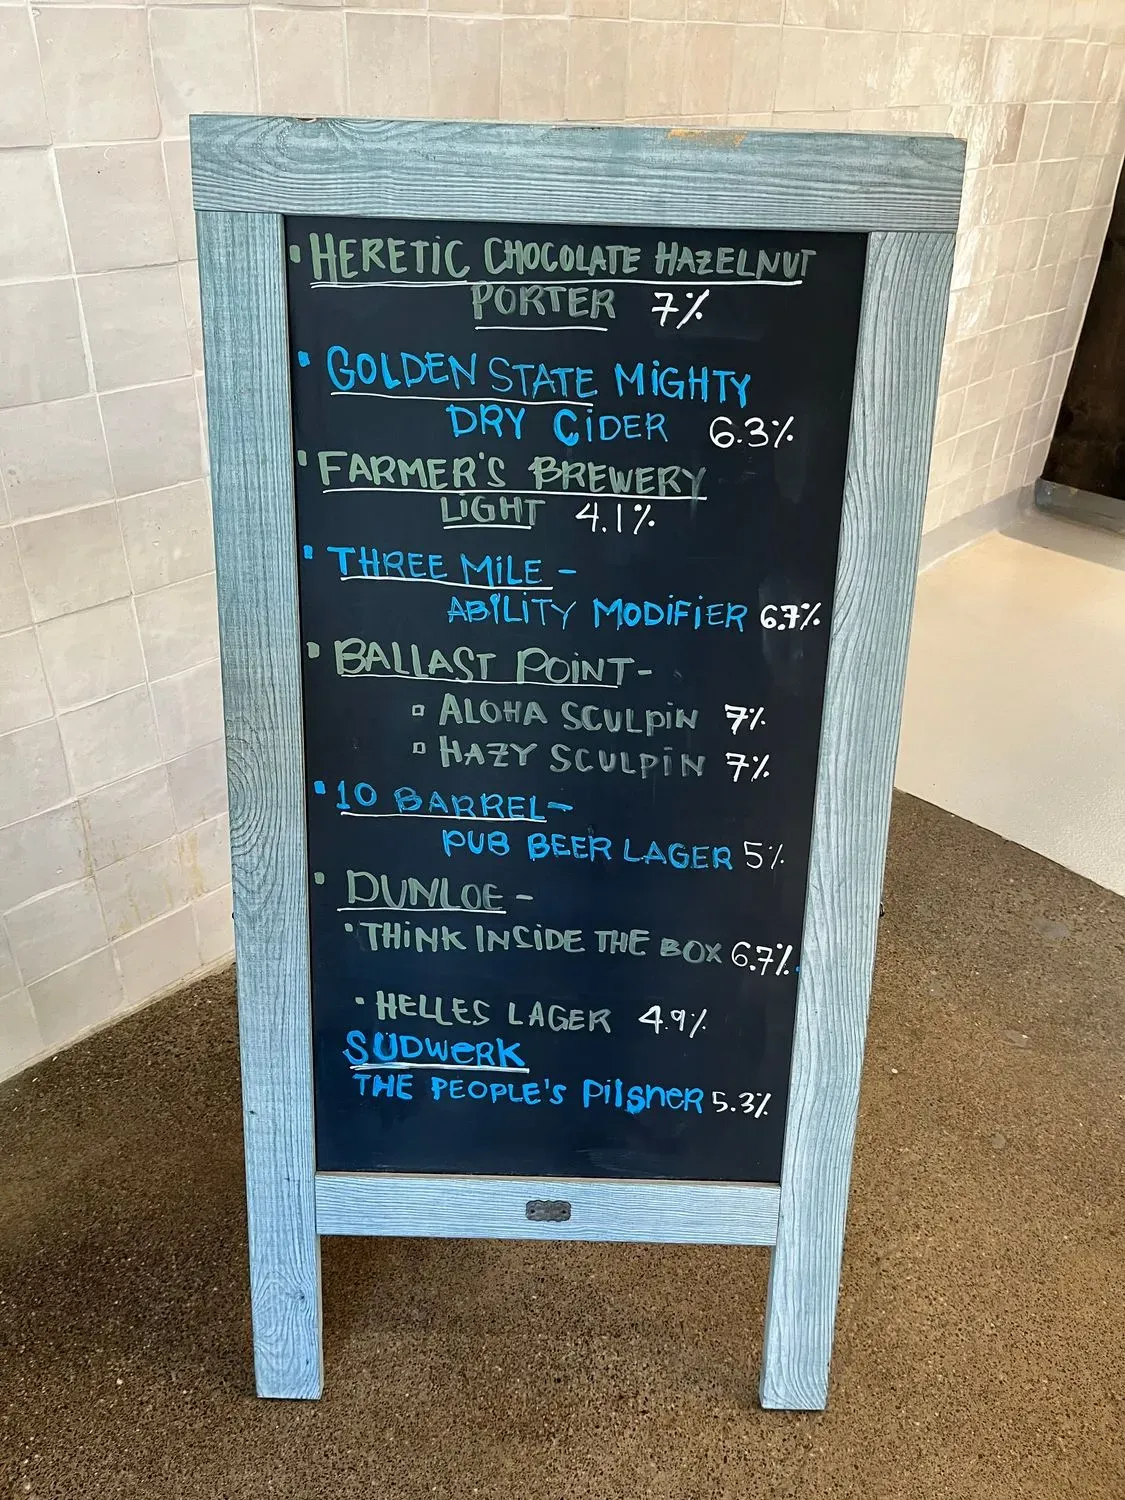 • HERETIC CHOCOLATE HAZELNUT
PORTER 7%
• GOLDEN STATE MiGHTY
DRY CiDER 6.3%
• FARMER'S BREWERY
LiGHT 4.1%
• THREE MiLE -
ABiLiTY MODiFiER 6.7%
• BALLAST POiNT-
▫ ALOHA SCULPiN 7%
▫ HAZY SCULPiN 7%
• 10 BARREL-
PUB BEER LAGER 5%
• DUNLOE -
• THiNK INSiDE THE BOX 6.7%
• HELLES LAGER 4.9%
SÜDWeRK
THE PEOPLE'S PilsneR 5.3%